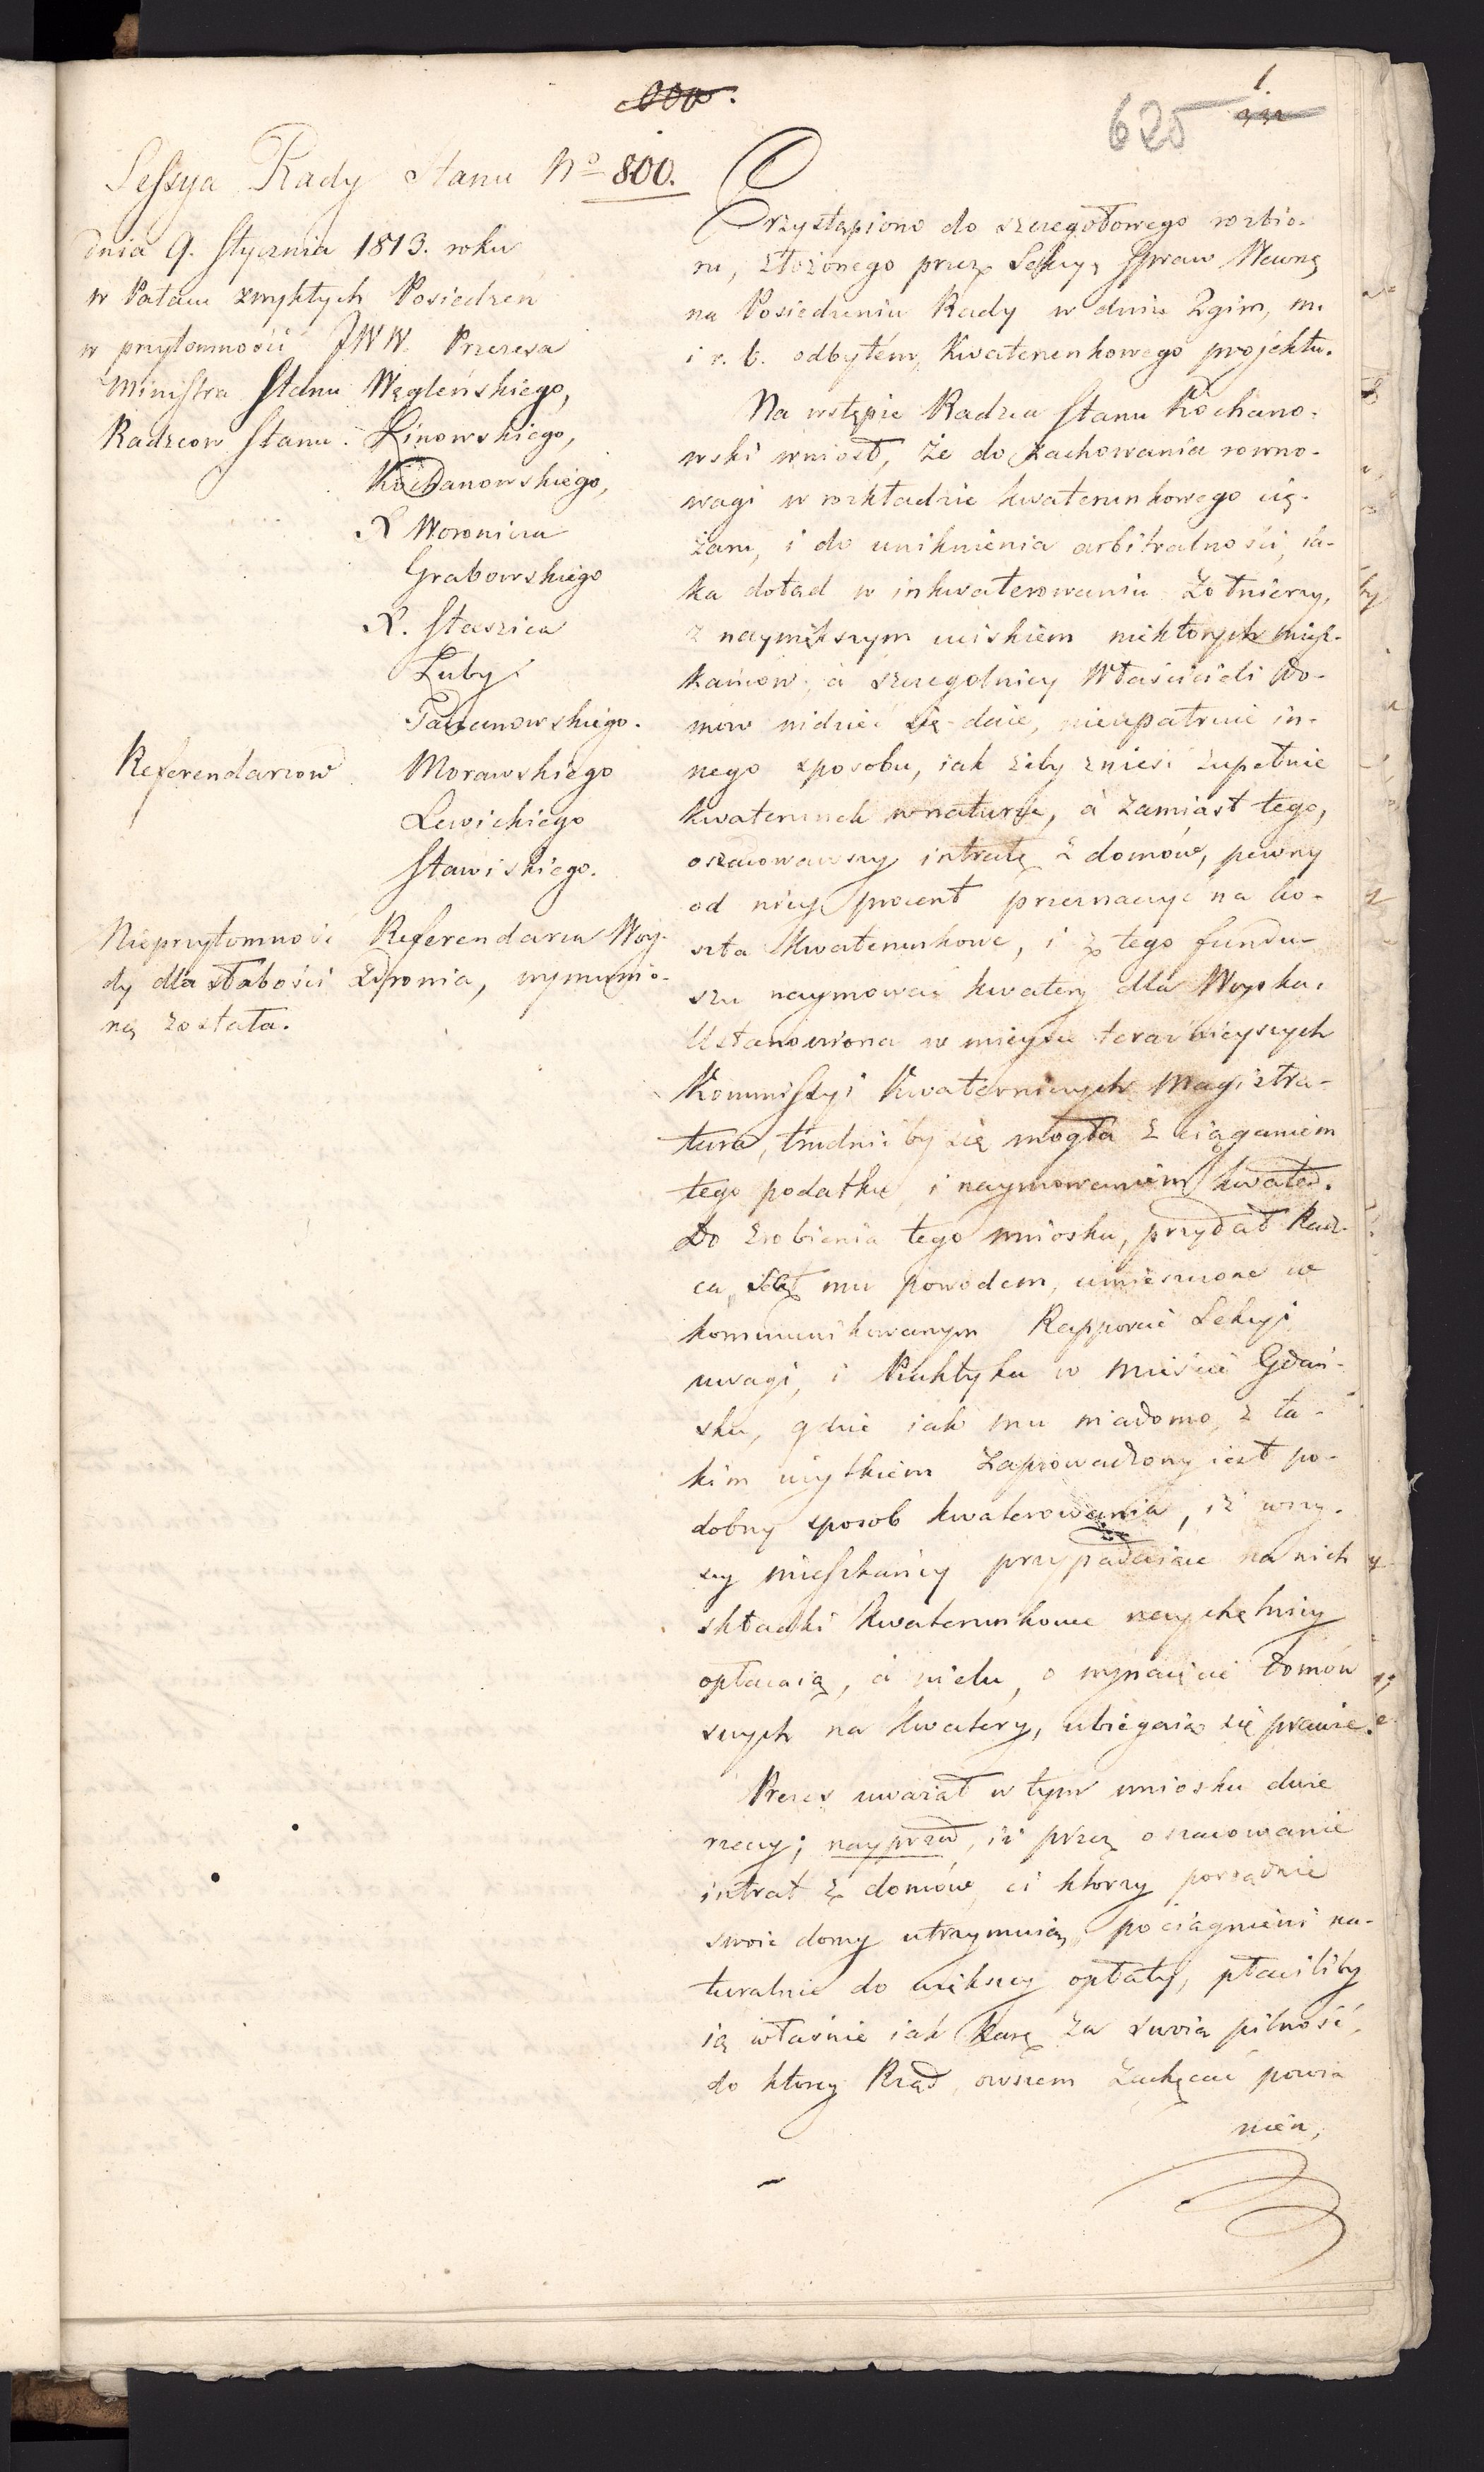 625
1
Sessya Rady Stanu No 800.
dnia 9. Stycznia 1813. roku
w Pałacu zwykłych Posiedzen
w przytomności JWW. Prezesa
Ministra Stanu Węgleńskiego,
Radzcow Stanu. Linowskiego,
Kochanowskiego,
X Woronicza
Grabowskiego
X. Staszica
Łuby
Tarzanowskiego.
Referendarzow Morawskiego
Lewickiego
Stawiskiego.
Nieprzytomność Referendarza Woy-
dy dla słabości Zdrowia, wymienio-
ną została.
Przystąpiono do szczegołowego rozbio-
ru, złożonego przez Sekcyą Spraw Wewnę
na Posiedzeniu Rady w dniu 2gim, m.
i r. b. odbytém, Kwaterunkowego projektu.
Na wstępie Radzca Stanu Kochano-
wski wniosł, że do zachowania rowno-
wagi w rozkładzie kwaterunkowego cię-
żaru, i do uniknienia arbitralności, ia-
ka dotąd w inkwaterowaniu Żołnierzy,
z naywiększym uciskiem niektorych miesz-
kańcow, a szczegolniey Właścicieli do-
mów widzieć się daie, nieupatruie in-
nego sposobu, iak żeby znieść zupełnie
kwaterunek w naturze, à zamiast tego,
oszacowawszy intratę z domów, pewny
od niey procent przeznaczyć na ko-
szta kwaterunkowe, i z tego fundu-
szu naymować kwatery dla Woyska.
Ustanowiona w mieyscu teraźnieyszych
Kommissyi Kwaterniczych Magistra-
tura, trudnić by się mogła z ciąganiem
tego podatku, i naymowaniem kwater.
Do zrobienia tego wniosku, przydał Radz-
ca, są mu powodem, umieszczone w
kommunikowanym Rapporcie Sekcyi
uwagi, i Praktyka w mieście Gdań-
sku, gdzie iak mu wiadomo, z ta-
kim użytkiem zaprowadzony iest po-
dobny sposob kwaterowania, iż wszy-
scy mieszkańcy przypadaiące na nich
składki kwaterunkowe naychętniey
opłacaią, à wielu, o wynaięcie domów
swych na kwatery, ubiegaią się prawie.
Prezes uważał w tym wniosku dwie
rzeczy; nayprzod, iż przez oszacowanie
intrat z domów, ci ktorzy porządnie
swoie domy utrzymuią, pociągnieni na-
turalnie do większey opłaty, płaciliby
ią właśnie iak karę za swoią pilność,
do ktorey Rząd, owszem zachęcać powi-
nien,